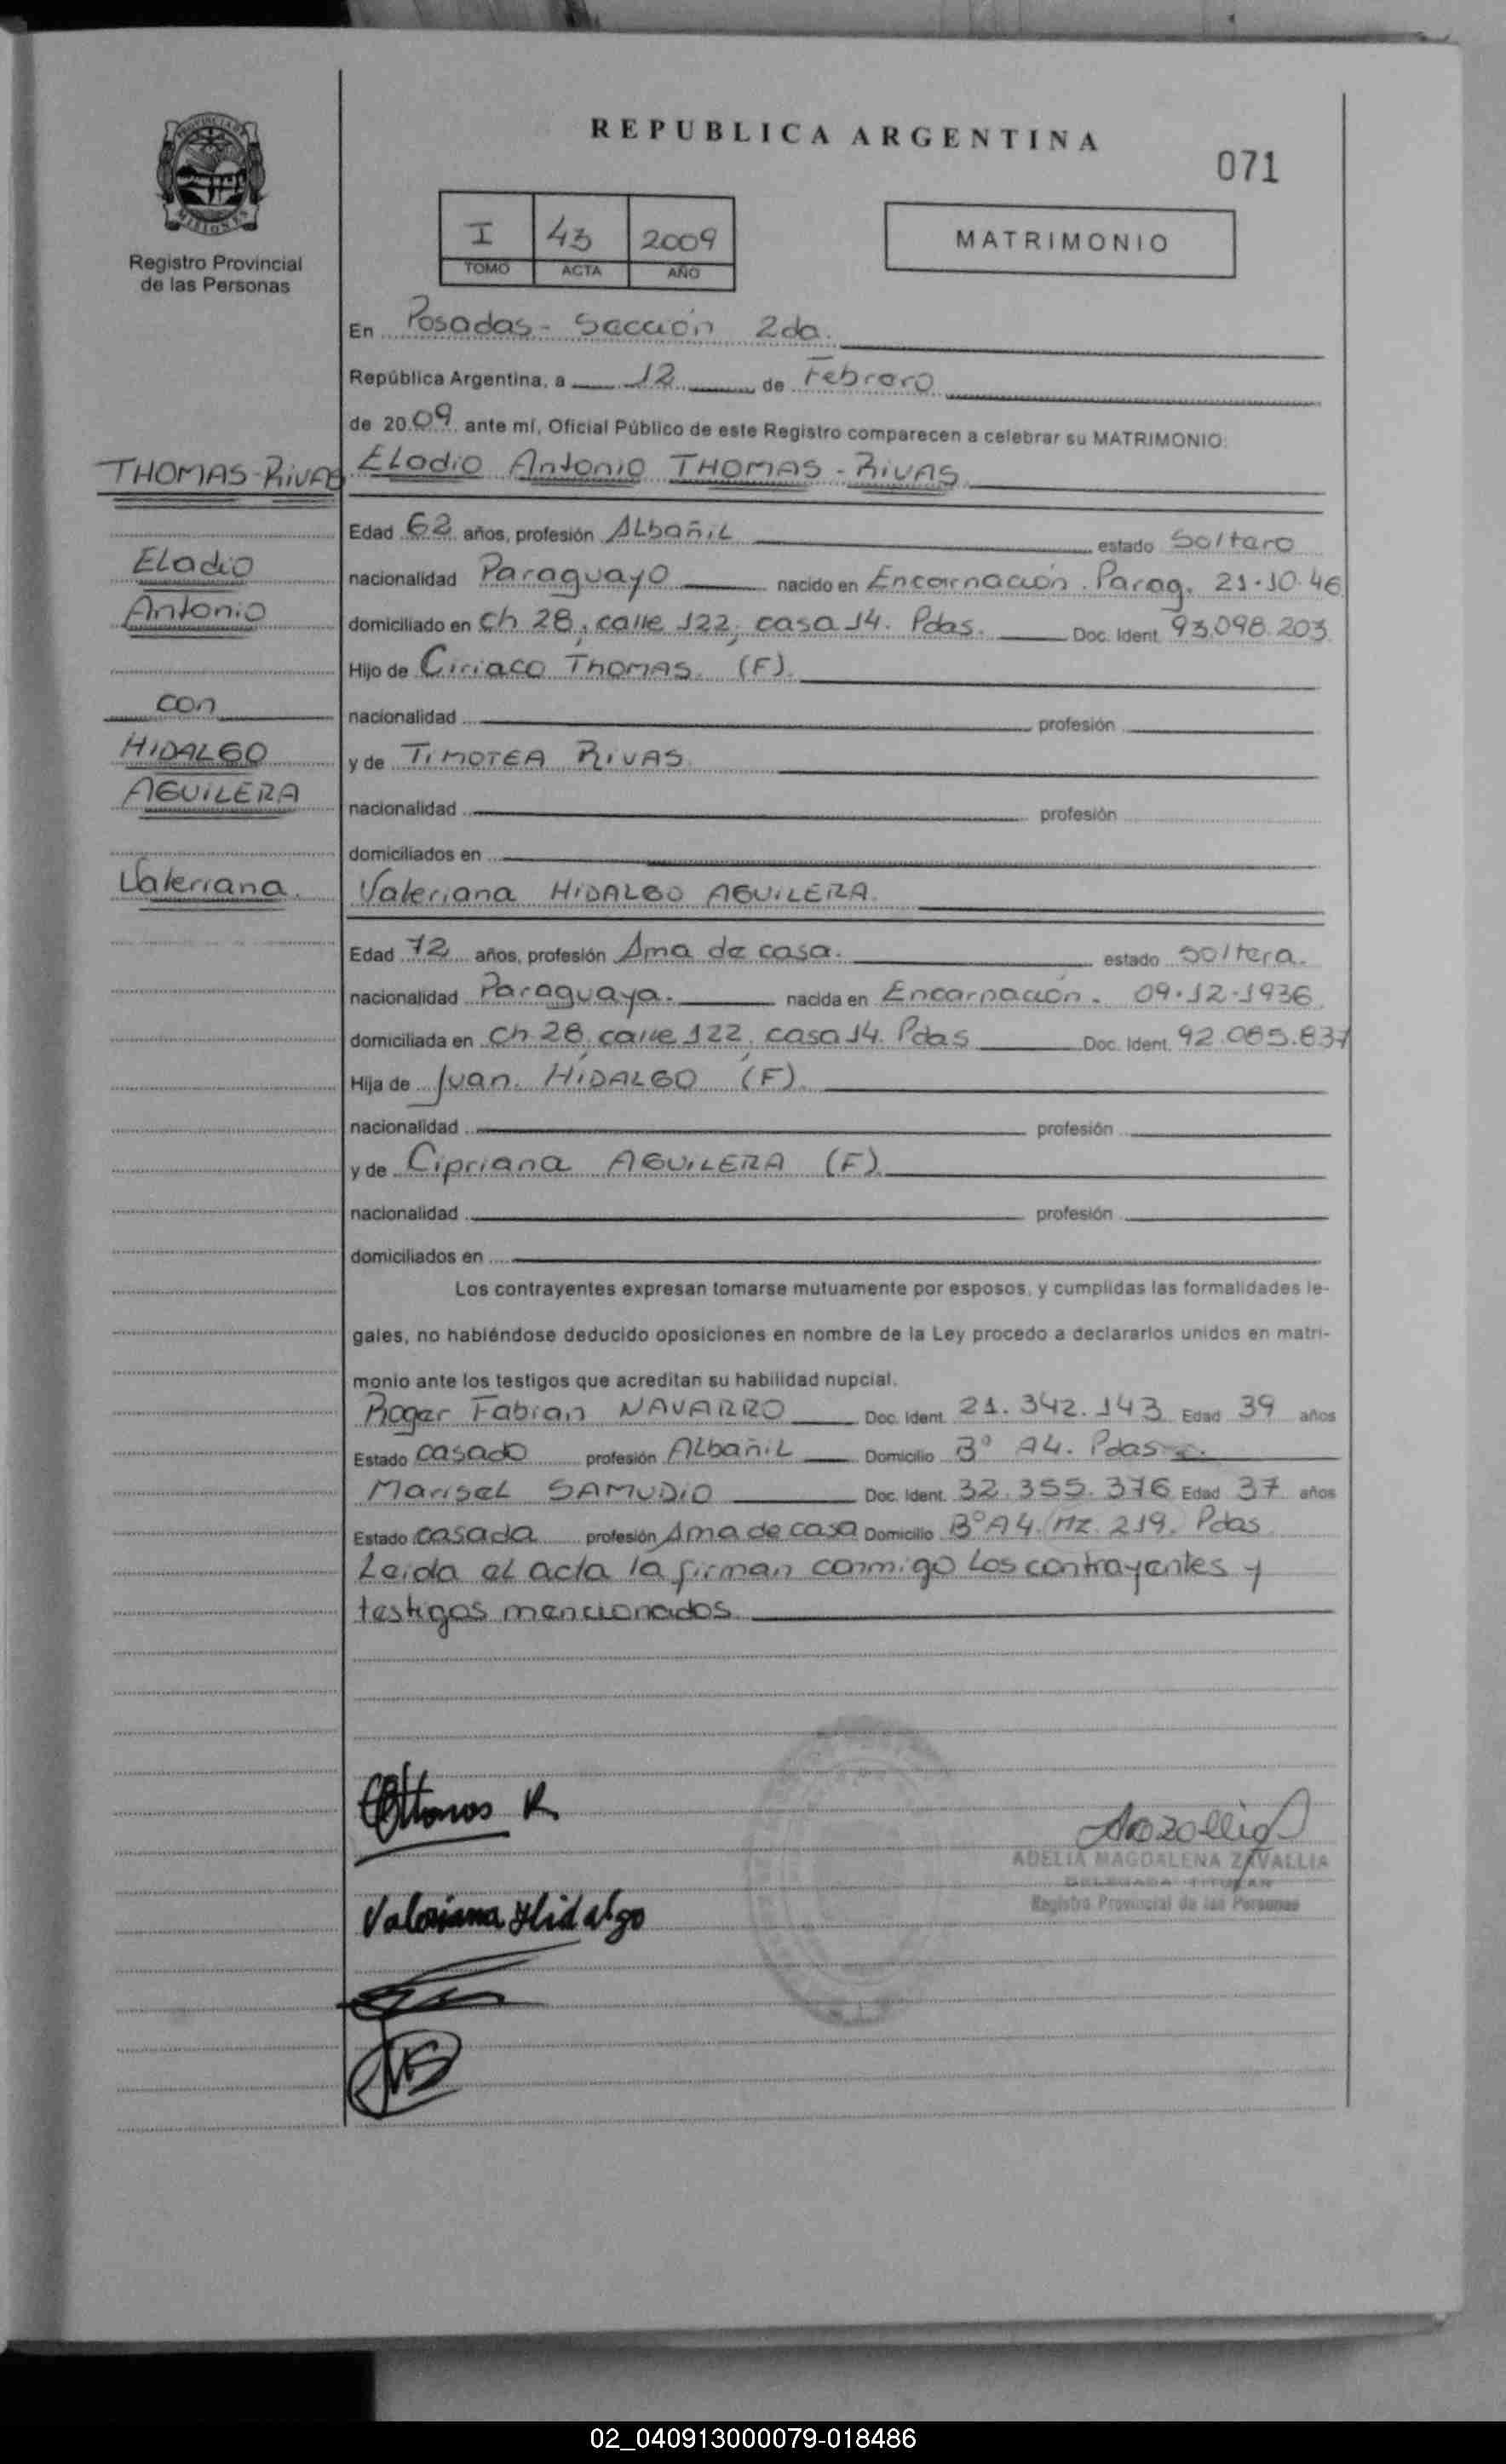 REPUBLICA ARGENTINA
071
PROVINCIA DE
MISIONES
Registro Provincial
de las Personas
I 43 2009
TOMO ACTA AÑO
MATRIMONIO
En Posadas - Sección 2da.
República Argentina, a 12 de Febrero
de 2009 ante mí, Oficial Público de este Registro comparecen a celebrar su MATRIMONIO:
THOMAS-RIVAS Eladio Antonio THOMAS - RIVAS
Edad 62 años, profesión Albañil estado Soltero
Eladio
nacionalidad Paraguayo nacido en Encarnación. Parag. 21.10.46
Antonio
domiciliado en Ch 28, calle 122, casa 14. Pdas. Doc. Ident. 93.098.203
Hijo de Ciriaco THOMAS (F)
con
nacionalidad profesión
HIDALGO
y de TIMOTEA RIVAS
AGUILERA
nacionalidad profesión
domiciliados en
Valeriana. Valeriana HIDALGO AGUILERA.
Edad 72 años, profesión Ama de casa. estado soltera.
nacionalidad Paraguaya. nacida en Encarnación. 09.12-1936
domiciliada en Ch 28, calle 122, casa 14. Pdas Doc. Ident. 92.085.837
Hija de Juan. HIDALGO (F)
nacionalidad profesión
y de Cipriana AGUILERA (F)
nacionalidad profesión
domiciliados en
Los contrayentes expresan tomarse mutuamente por esposos, y cumplidas las formalidades le-
gales, no habiéndose deducido oposiciones en nombre de la Ley procedo a declararlos unidos en matri-
monio ante los testigos que acreditan su habilidad nupcial.
Roger Fabian NAVARRO Doc. Ident. 21.342.143 Edad 39 años
Estado casado profesión Albañil Domicilio Bº A4. Pdas
Marisel SAMUDIO Doc. Ident. 32.355.376 Edad 37 años
Estado casada profesión Ama de casa Domicilio Bº A4. Mz. 219. Pdas
Leida el acta la firman conmigo los contrayentes y
testigos mencionados
Thomas R
ADELIA MAGDALENA ZAVALLIA
DELEGADA TITULAR
Registro Provincial de las Personas
Valeriana Hidalgo
02_040913000079-018486